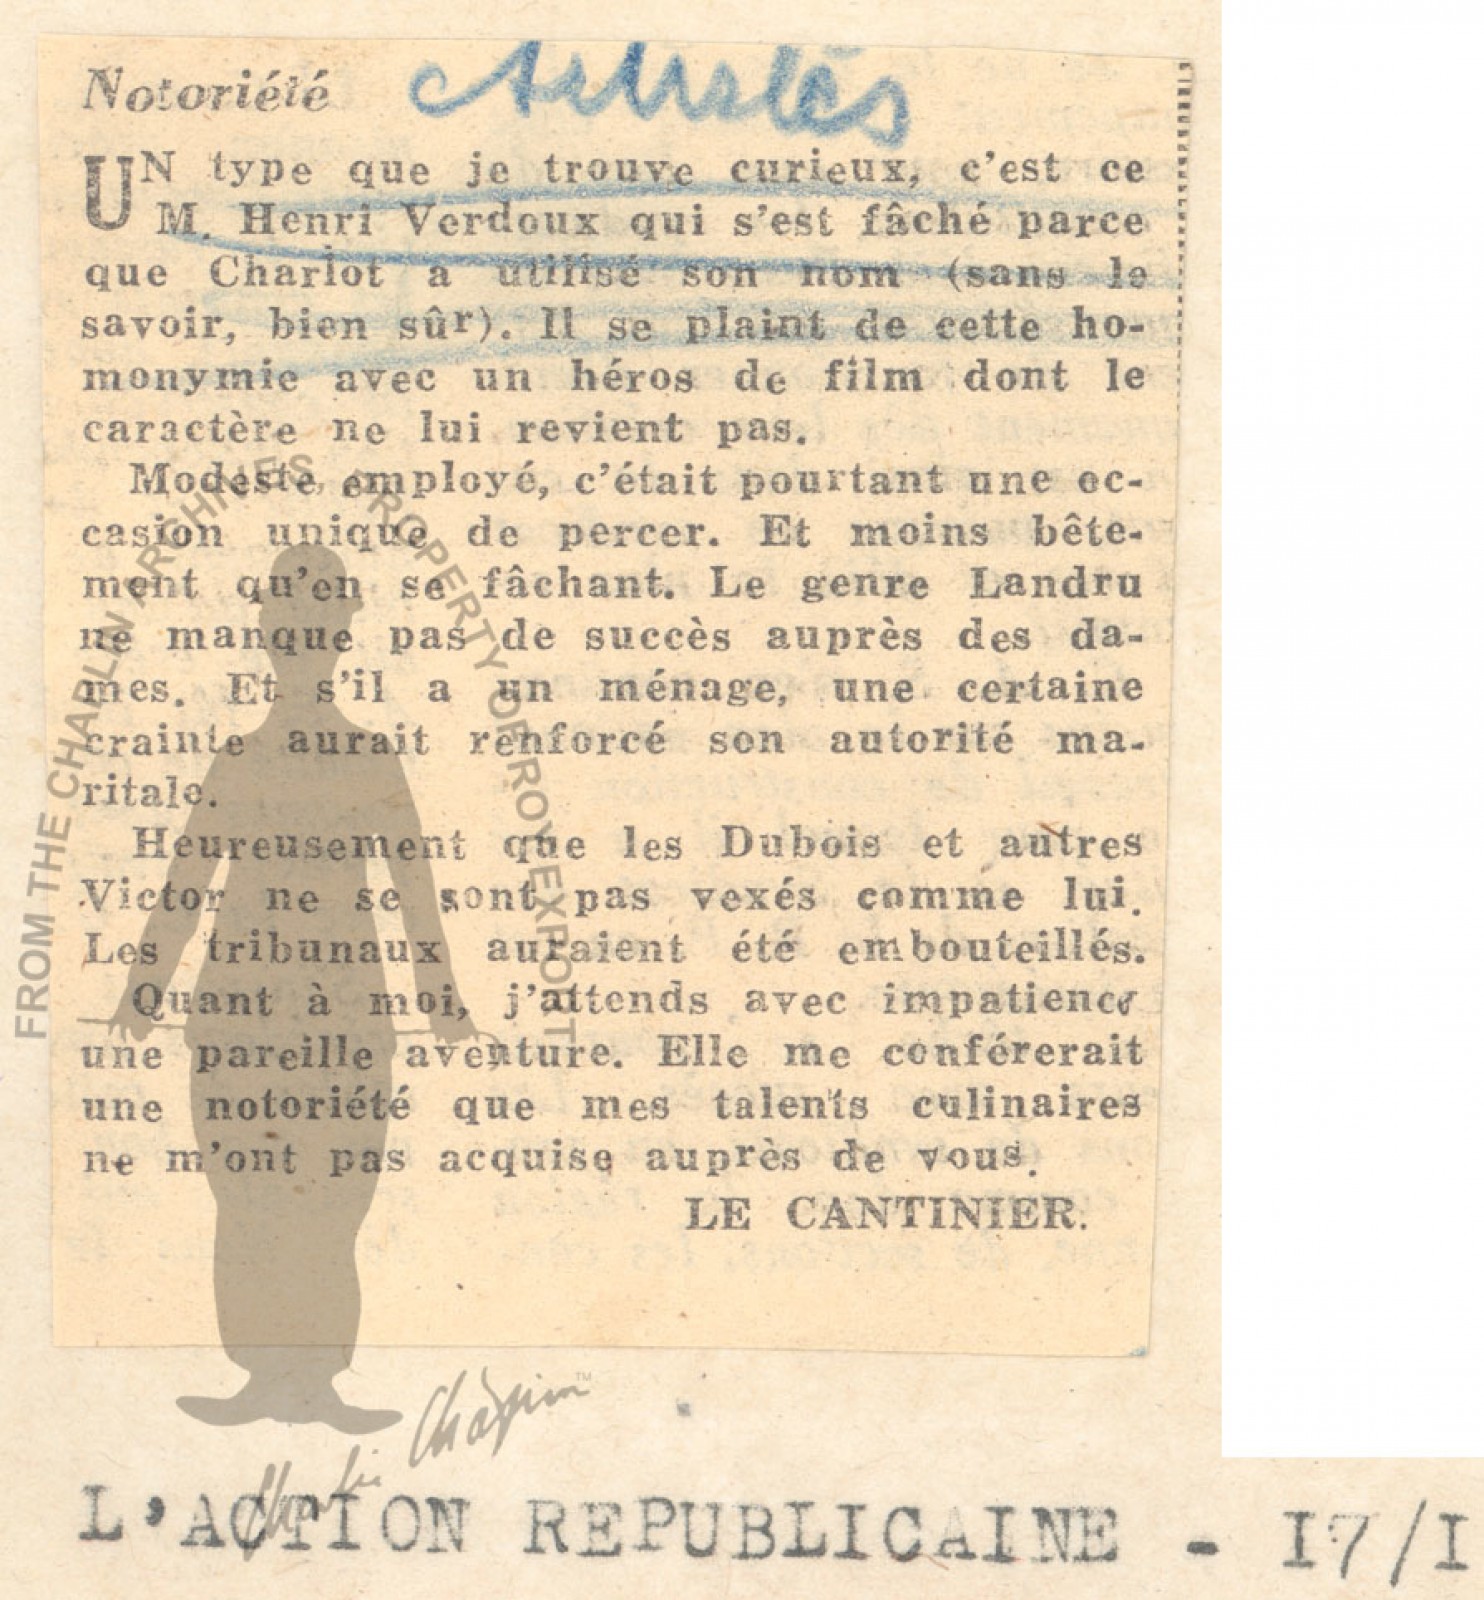 Notoriété
Artistes
UN type que je trouve curieux, c'est ce
M. Henri Verdoux qui s'est fâché parce
que Charlot a utilisé son nom (sans le
savoir, bien sûr). Il se plaint de cette ho-
monymie avec un héros de film dont le
caractère ne lui revient pas.
Modeste employé, c'était pourtant une oc-
casion unique de percer. Et moins bête-
ment qu'en se fâchant. Le genre Landru
ne manque pas de succès auprès des da-
mes. Et s'il a un ménage, une certaine
crainte aurait renforcé son autorité ma-
ritale.
Heureusement que les Dubois et autres
Victor ne se sont pas vexés comme lui.
Les tribunaux auraient été embouteillés.
Quant à moi, j'attends avec impatience
une pareille aventure. Elle me conférerait
une notoriété que mes talents culinaires
ne m'ont pas acquise auprès de vous.
LE CANTINIER.
FROM THE CHAPLIN ARCHIVES, PROPERTY OF ROY EXPORT
Charlie Chaplin™
L'ACTION REPUBLICAINE - I7/I